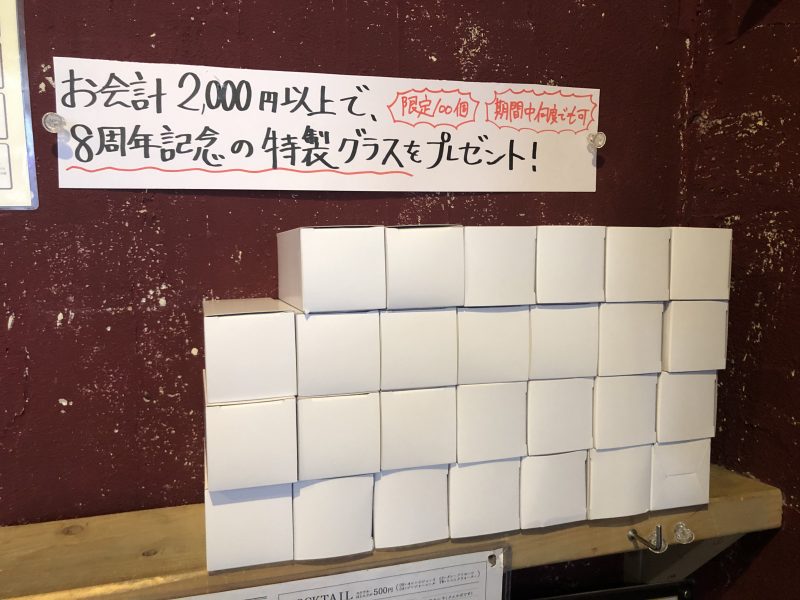 お会計2,000円以上で、
限定100個
期間中何度でも可
8周年記念の特製グラスをプレゼント!
COCKTAIL
500円